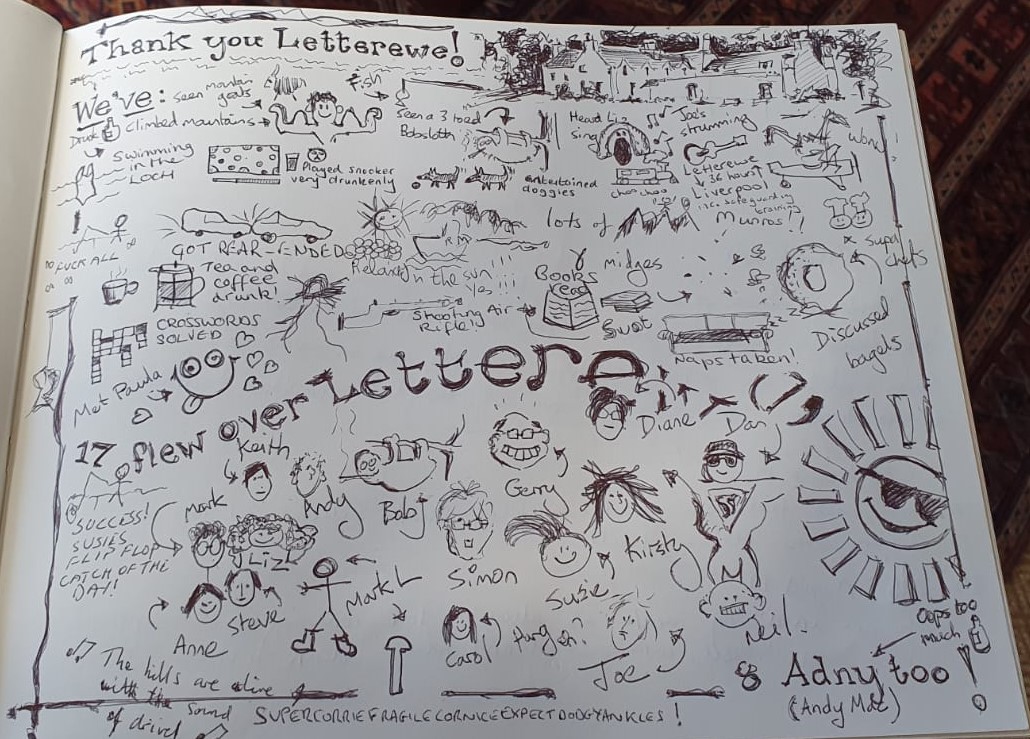 Thank you Letterewe!
We've:
seen mountain
goats
Fish
Drunk
Climbed mountains
Seen a 3 toed
Bobsloth
Head Liz
sing
Joe's
strumming
Swimming
in the
LOCH
Played snooker
very drunkenly
entertained
doggies
choo choo
Letterewe
36 hours!
Liverpool
Work
GOT REAR-ENDED
lots of
Munros!?
FUCK ALL
Tea and
coffee
drunk!
Relaxed in the sun!!!
Yes!!!
Books
read
Midges
Super
chefs
CROSSWORDS
SOLVED
Shooting Air
Rifle!
Swot
Naps taken!
Discussed
bagels
Met Paula
17 flew over Lettere
Keith
Diane
Dan
Mark
Andy
Bob
Gerry
SUCCESS!
SUSIES
FLIP FLOP
CATCH OF THE
DAY!
Liz
Simon
Susie
Kirsty
Mark L
Anne
Steve
Carol
Joe
Neil.
Oops too
much
& Adny too
(Andy Mac)
The hills are alive
with the sound
of drivel
SUPERCORRIEFRAGILECORNICEEXPECTDODGYANKLES!